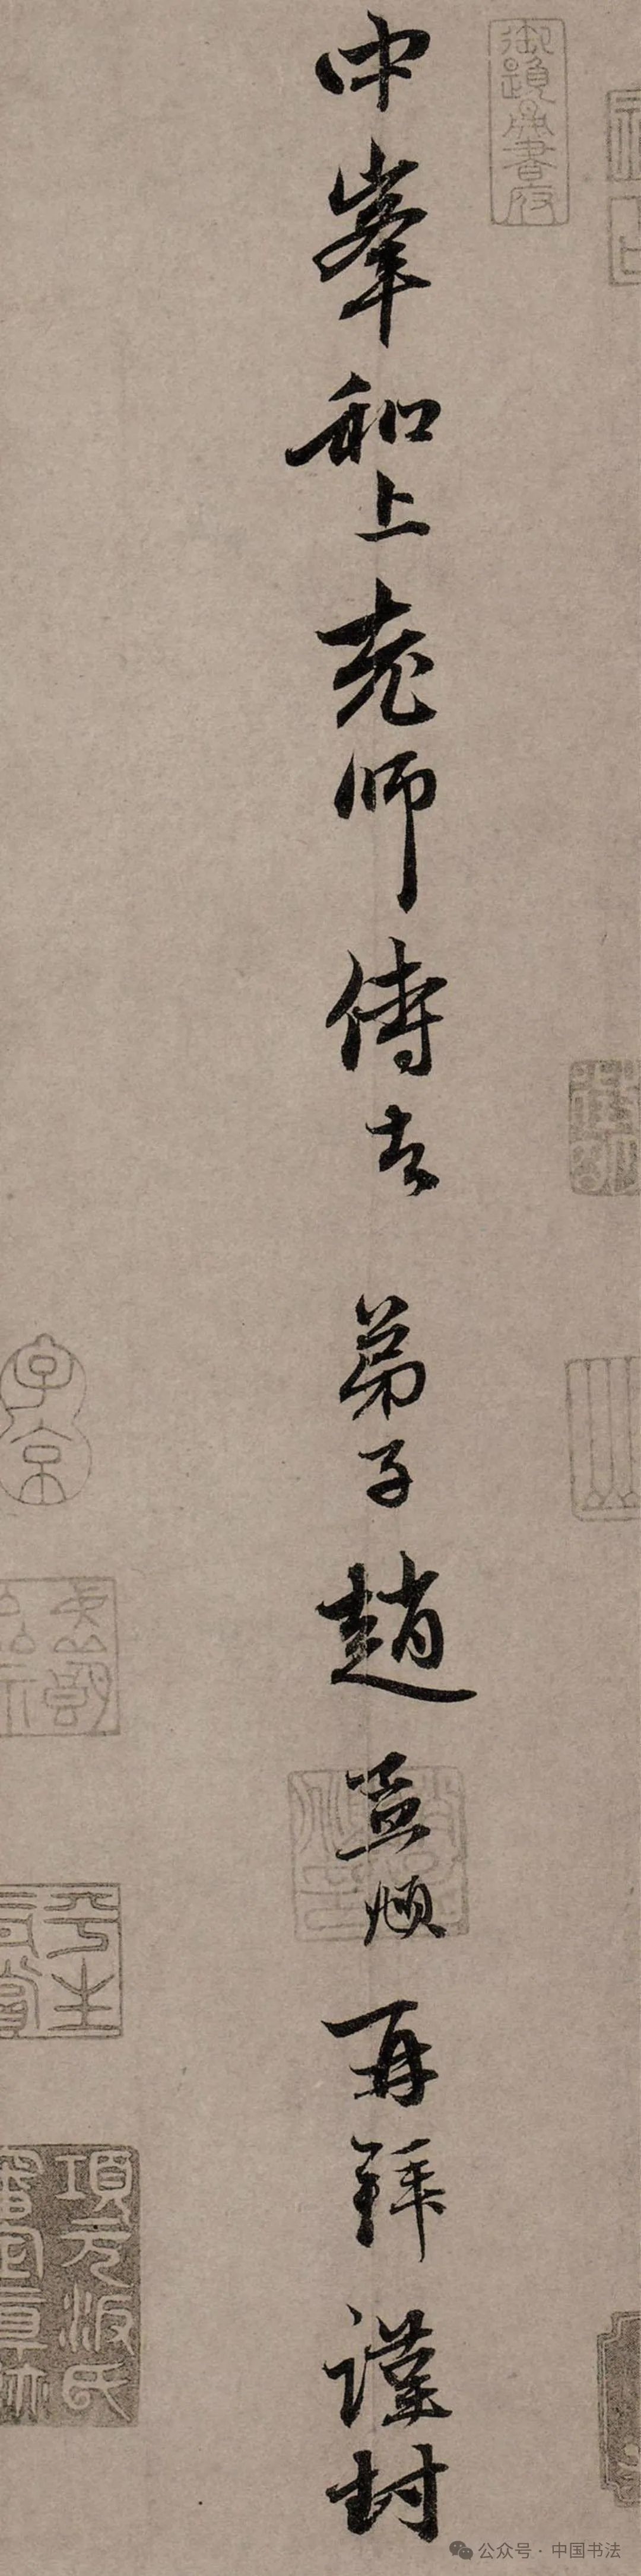 中峯和上老师侍者 弟子趙孟頫再拜謹封
御題畫書府
子京
平生
項元汴氏
公众号·中国书法